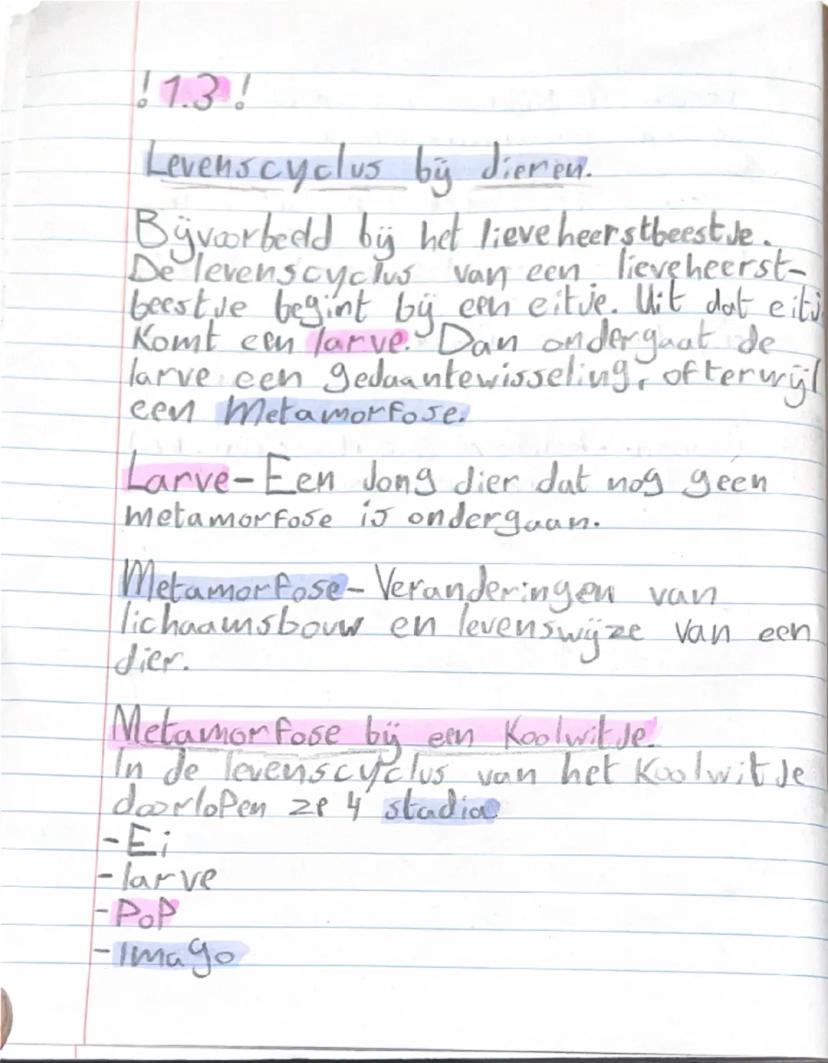 ! 1.3 !
Levenscyclus bij dieren.
Bijvoorbeeld bij het lieveheerstbeestje.
De levenscyclus van een lieveheerst-
beestje begint bij een eitje. Uit dat eitj
Komt een larve. Dan ondergaat de
larve een gedaantewisseling, ofterwijl
een Metamorfose.
Larve - Een Jong dier dat nog geen
metamorfose is ondergaan.
Metamorfose - Veranderingen van
lichaamsbouw en levenswijze van een
dier.
Metamorfose bij een Koolwitje.
In de levenscyclus van het Koolwitje
doorlopen ze 4 stadia
- Ei
- larve
- PoP
- Imago